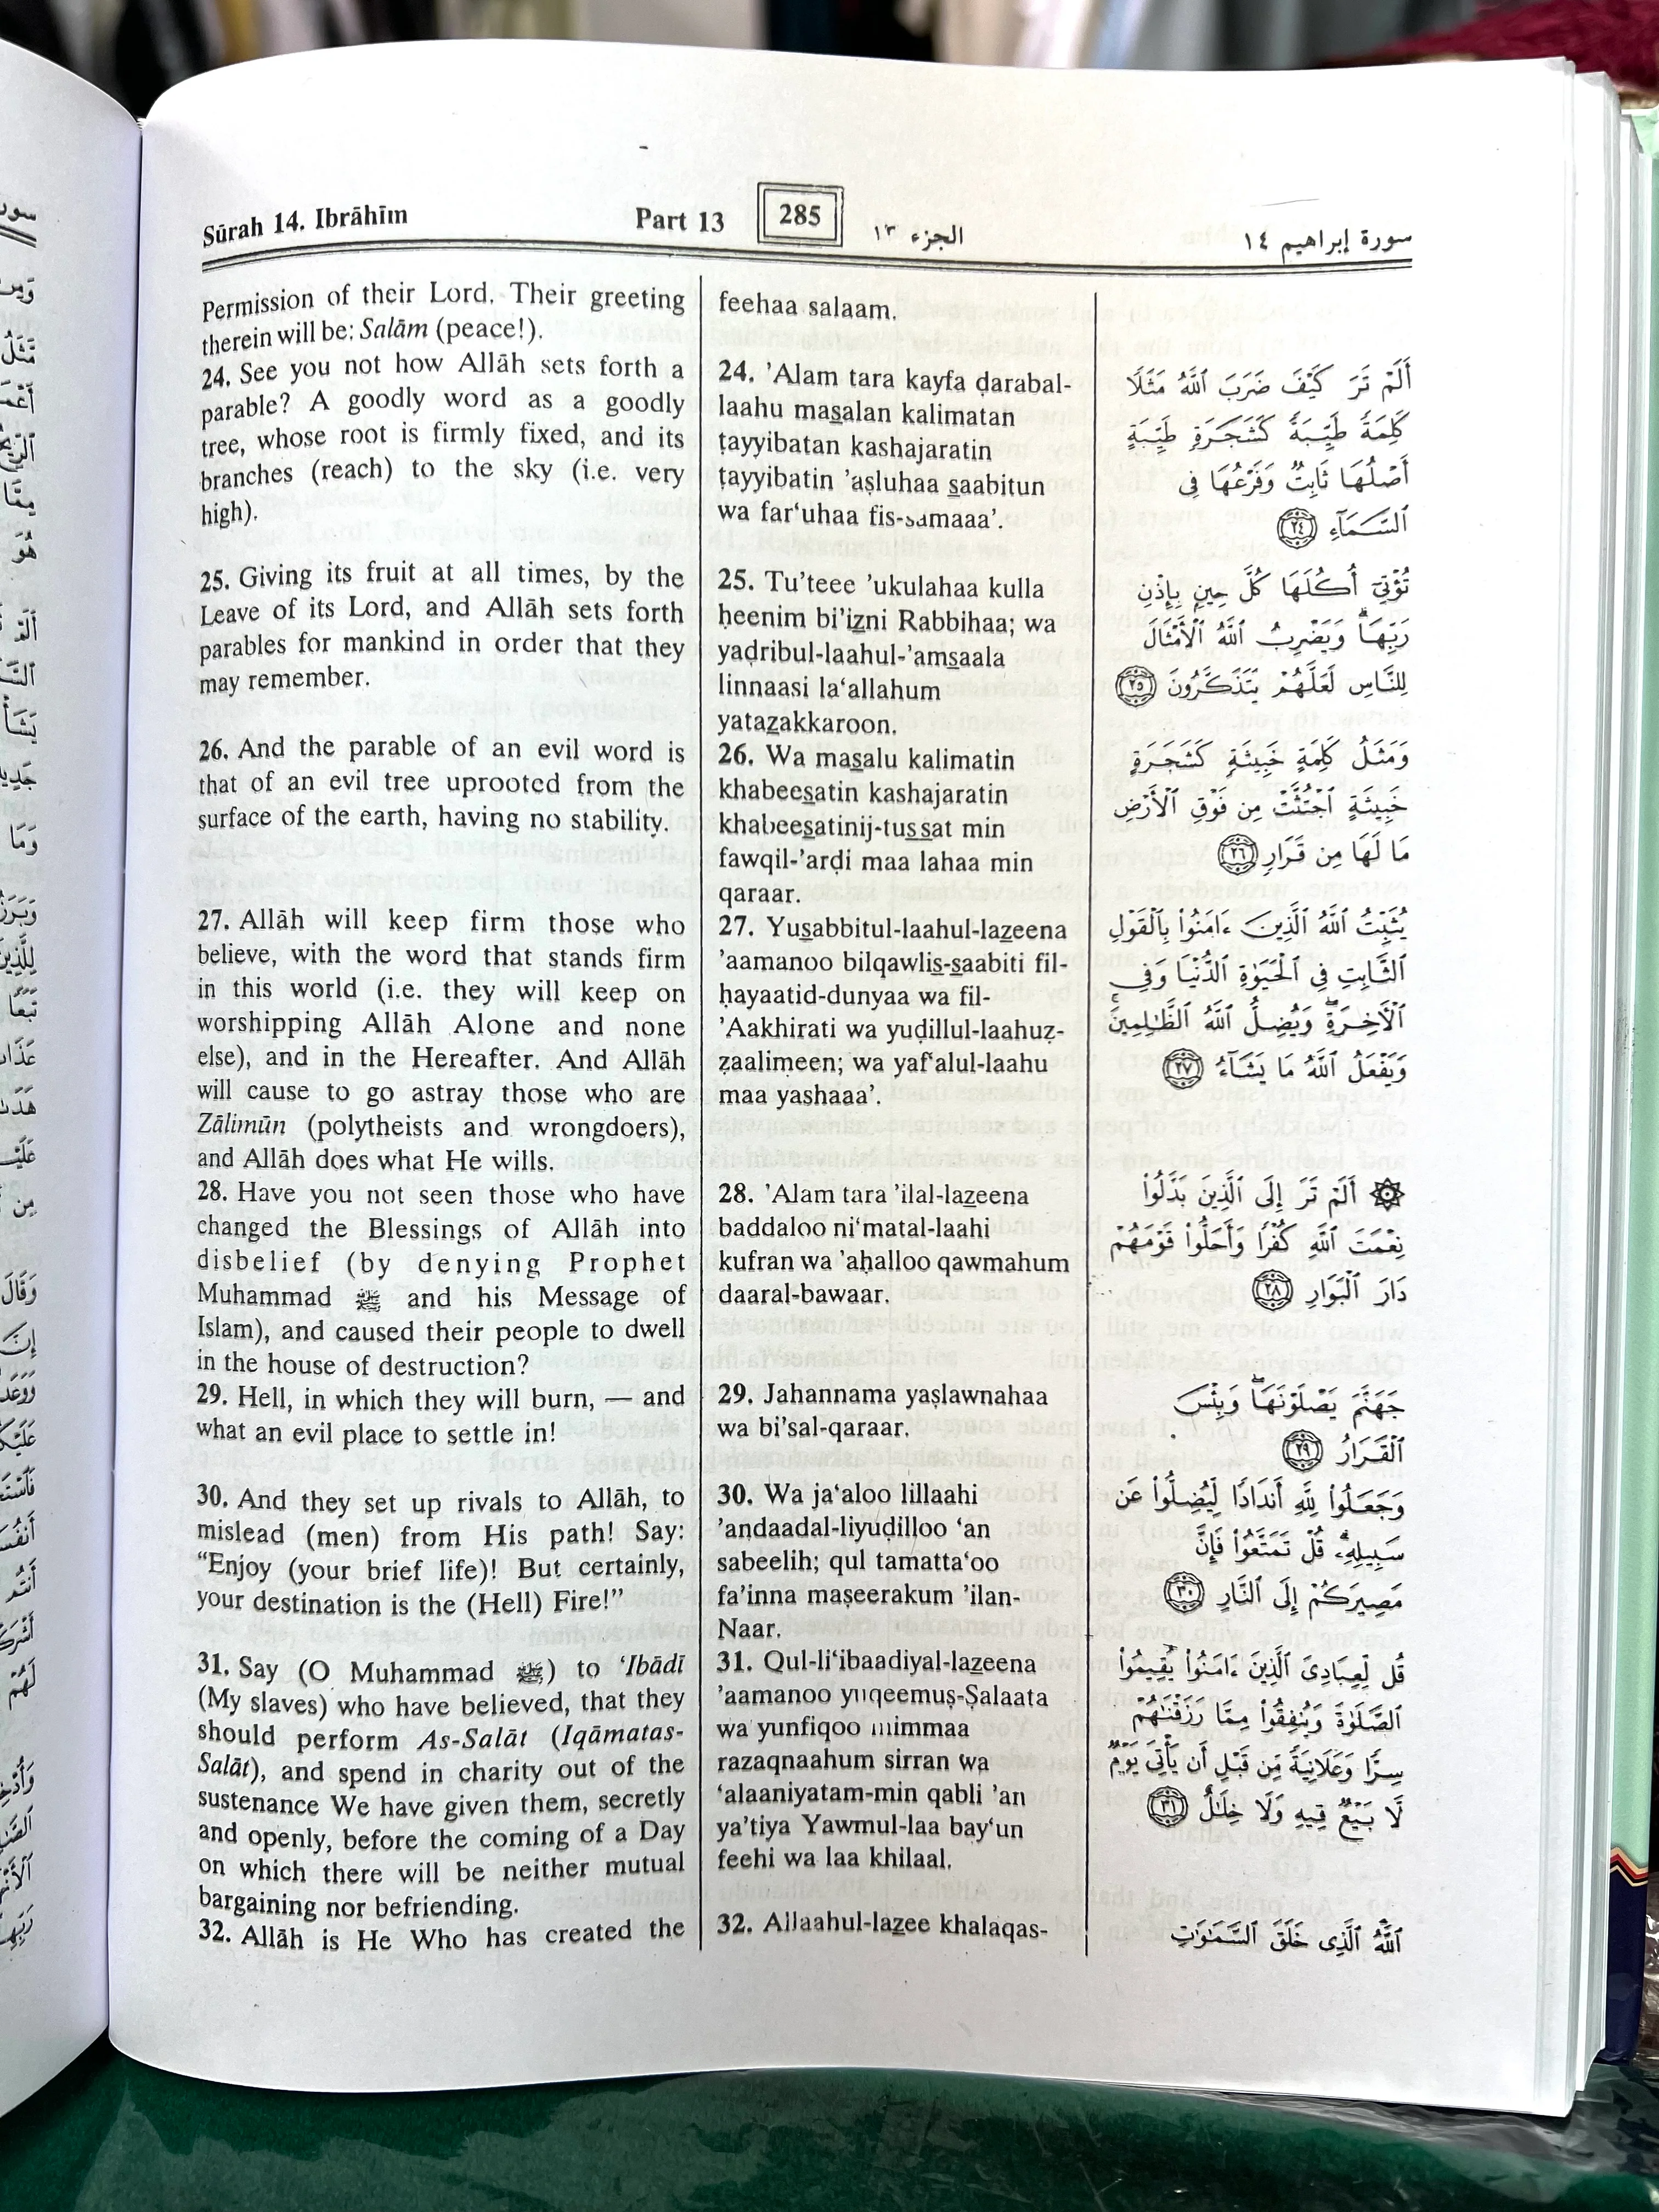 Sūrah 14. Ibrāhīm
Part 13
285
الجزء ١٣
سورة إبراهيم ١٤
Permission of their Lord. Their greeting
therein will be: Salām (peace!).
24. See you not how Allāh sets forth a
parable? A goodly word as a goodly
tree, whose root is firmly fixed, and its
branches (reach) to the sky (i.e. very
high).
25. Giving its fruit at all times, by the
Leave of its Lord, and Allāh sets forth
parables for mankind in order that they
may remember.
26. And the parable of an evil word is
that of an evil tree uprooted from the
surface of the earth, having no stability.
27. Allāh will keep firm those who
believe, with the word that stands firm
in this world (i.e. they will keep on
worshipping Allāh Alone and none
else), and in the Hereafter. And Allāh
will cause to go astray those who are
Zālimūn (polytheists and wrongdoers),
and Allāh does what He wills.
28. Have you not seen those who have
changed the Blessings of Allāh into
disbelief (by denying Prophet
Muhammad ﷺ and his Message of
Islam), and caused their people to dwell
in the house of destruction?
29. Hell, in which they will burn, — and
what an evil place to settle in!
30. And they set up rivals to Allāh, to
mislead (men) from His path! Say:
“Enjoy (your brief life)! But certainly,
your destination is the (Hell) Fire!”
31. Say (O Muhammad ﷺ) to ‘Ibādī
(My slaves) who have believed, that they
should perform As-Salāt (Iqāmatas-
Salāt), and spend in charity out of the
sustenance We have given them, secretly
and openly, before the coming of a Day
on which there will be neither mutual
bargaining nor befriending.
32. Allāh is He Who has created the
feehaa salaam.
24. ’Alam tara kayfa ḍarabal-
laahu masalan kalimatan
ṭayyibatan kashajaratin
ṭayyibatin ’aṣluhaa saabitun
wa far‘uhaa fis-samaaa’.
25. Tu’teee ’ukulahaa kulla
ḥeenim bi’izni Rabbihaa; wa
yaḍribul-laahul-’amsaala
linnaasi la‘allahum
yatazakkaroon.
26. Wa masalu kalimatin
khabeesatin kashajaratin
khabeesatinij-tussat min
fawqil-’arḍi maa lahaa min
qaraar.
27. Yusabbitul-laahul-lazeena
’aamanoo bilqawlis-saabiti fil-
ḥayaatid-dunyaa wa fil-
’Aakhirati wa yuḍillul-laahuẓ-
ẓaalimeen; wa yaf‘alul-laahu
maa yashaaa’.
28. ’Alam tara ’ilal-lazeena
baddaloo ni‘matal-laahi
kufran wa ’aḥalloo qawmahum
daaral-bawaar.
29. Jahannama yaṣlawnahaa
wa bi’sal-qaraar.
30. Wa ja‘aloo lillaahi
’andaadal-liyuḍilloo ‘an
sabeelih; qul tamatta‘oo
fa’inna maṣeerakum ’ilan-
Naar.
31. Qul-li‘ibaadiyal-lazeena
’aamanoo yuqeemuṣ-Ṣalaata
wa yunfiqoo mimmaa
razaqnaahum sirran wa
‘alaaniyatam-min qabli ’an
ya’tiya Yawmul-laa bay‘un
feehi wa laa khilaal.
32. Allaahul-lazee khalaqas-
أَلَمْ تَرَ كَيْفَ ضَرَبَ ٱللَّهُ مَثَلًا
كَلِمَةً طَيِّبَةً كَشَجَرَةٍ طَيِّبَةٍ
أَصْلُهَا ثَابِتٌ وَفَرْعُهَا فِى
ٱلسَّمَآءِ ٢٤
تُؤْتِىٓ أُكُلَهَا كُلَّ حِينٍ بِإِذْنِ
رَبِّهَا ۗ وَيَضْرِبُ ٱللَّهُ ٱلْأَمْثَالَ
لِلنَّاسِ لَعَلَّهُمْ يَتَذَكَّرُونَ ٢٥
وَمَثَلُ كَلِمَةٍ خَبِيثَةٍ كَشَجَرَةٍ
خَبِيثَةٍ ٱجْتُثَّتْ مِن فَوْقِ ٱلْأَرْضِ
مَا لَهَا مِن قَرَارٍ ٢٦
يُثَبِّتُ ٱللَّهُ ٱلَّذِينَ ءَامَنُوا۟ بِٱلْقَوْلِ
ٱلثَّابِتِ فِى ٱلْحَيَوٰةِ ٱلدُّنْيَا وَفِى
ٱلْءَاخِرَةِ ۖ وَيُضِلُّ ٱللَّهُ ٱلظَّـٰلِمِينَ ۚ
وَيَفْعَلُ ٱللَّهُ مَا يَشَآءُ ٢٧
۞ أَلَمْ تَرَ إِلَى ٱلَّذِينَ بَدَّلُوا۟
نِعْمَتَ ٱللَّهِ كُفْرًا وَأَحَلُّوا۟ قَوْمَهُمْ
دَارَ ٱلْبَوَارِ ٢٨
جَهَنَّمَ يَصْلَوْنَهَا ۖ وَبِئْسَ
ٱلْقَرَارُ ٢٩
وَجَعَلُوا۟ لِلَّهِ أَندَادًا لِّيُضِلُّوا۟ عَن
سَبِيلِهِۦ ۗ قُلْ تَمَتَّعُوا۟ فَإِنَّ
مَصِيرَكُمْ إِلَى ٱلنَّارِ ٣٠
قُل لِّعِبَادِىَ ٱلَّذِينَ ءَامَنُوا۟ يُقِيمُوا۟
ٱلصَّلَوٰةَ وَيُنفِقُوا۟ مِمَّا رَزَقْنَـٰهُمْ
سِرًّا وَعَلَانِيَةً مِّن قَبْلِ أَن يَأْتِىَ يَوْمٌ
لَّا بَيْعٌ فِيهِ وَلَا خِلَـٰلٌ ٣١
ٱللَّهُ ٱلَّذِى خَلَقَ ٱلسَّمَـٰوَٰتِ